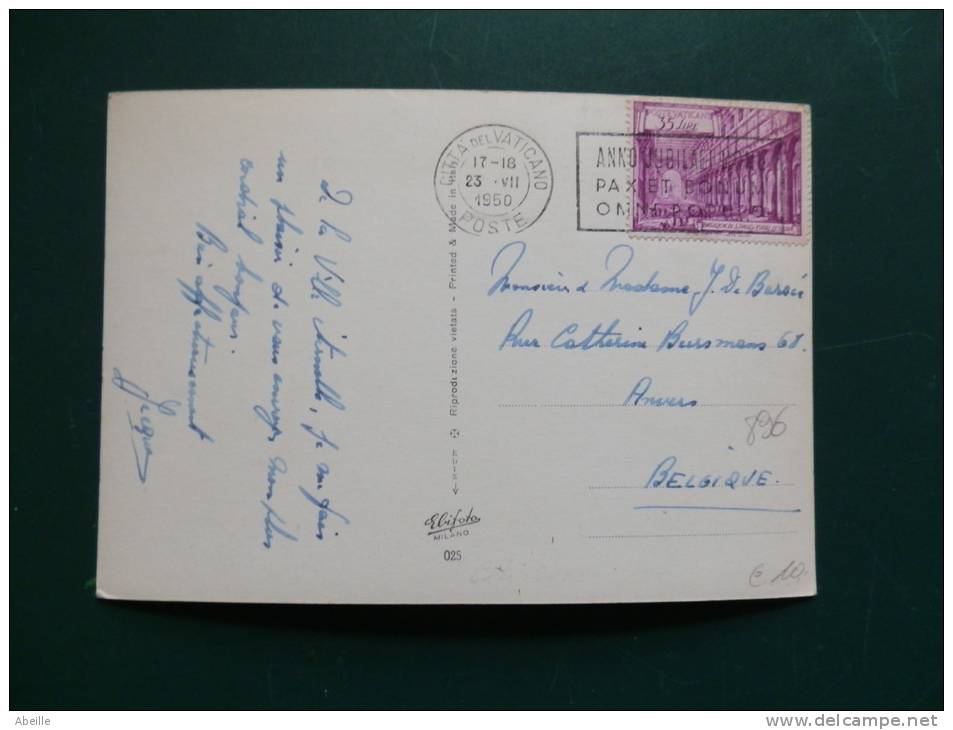 De la Ville éternelle, je me fais
un plaisir de vous envoyer mon plus
cordial bonjour.
Bien affectueusement
Jacques
Riproduzione vietata - Printed & Made in Italy
Elifoto
MILANO
025
CITTA DEL VATICANO
17-18
23 VII
1950
POSTE
ANNO JUBILAEI
PAX ET BONUM
OMNI
35 LIRE
Monsieur & Madame J. De
Rue Catherine Beersmans 68.
Anvers
BELGIQUE.
896
€ 10.
Abeille
www.delcampe.net